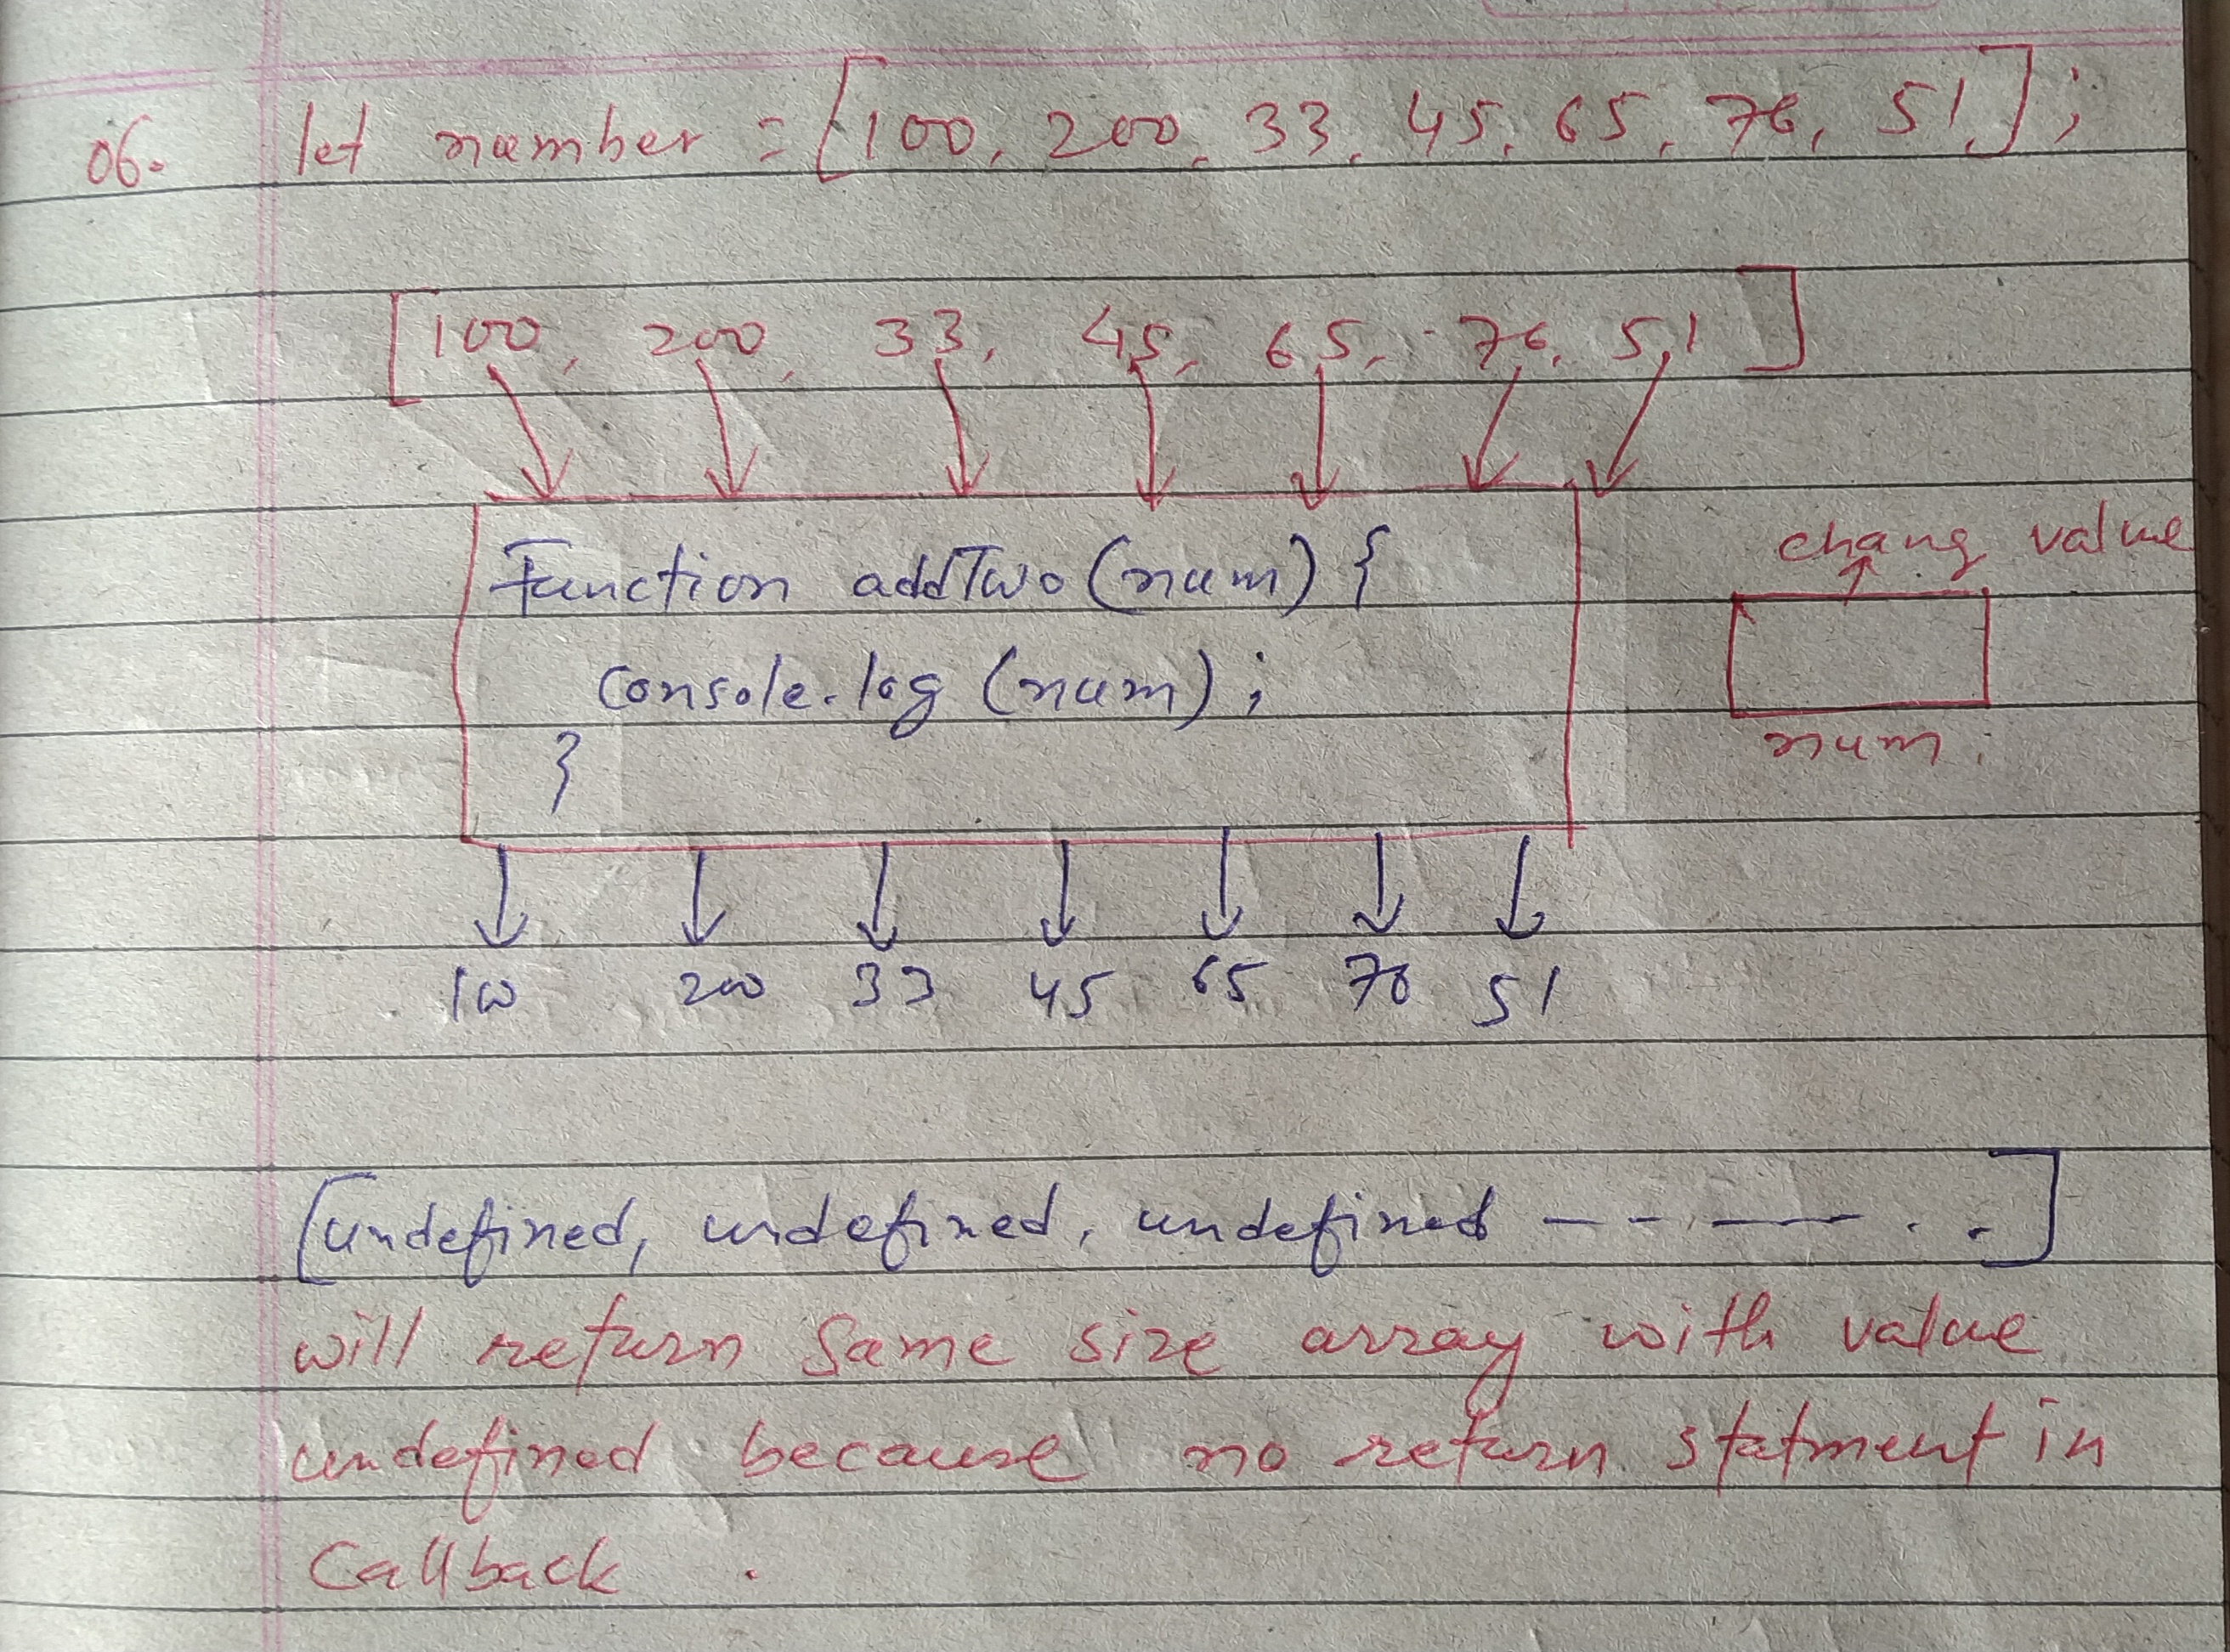 06. let number = [100, 200, 33, 45, 65, 76, 51,];
[100, 200, 33, 45, 65, 76, 51]
Function addTwo (num) {
console.log (num);
}
chang value
num.
100 200 33 45 65 76 51
[undefined, undefined, undefined -- -- -- . .]
will return same size array with value
undefined because no return statment in
Callback .